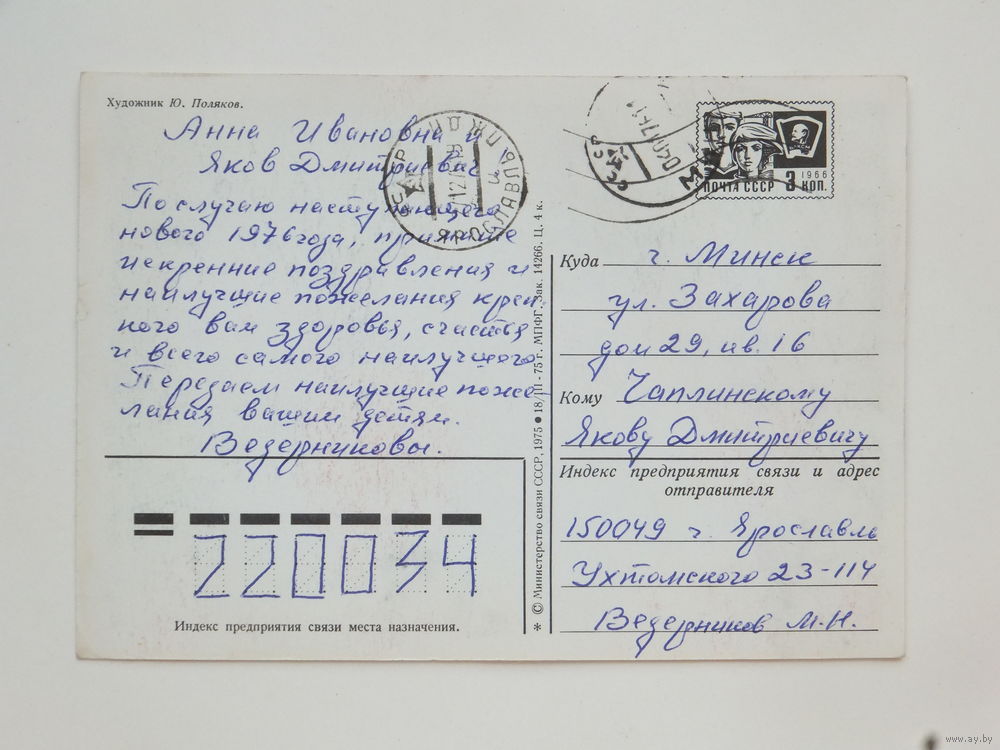 Художник Ю. Поляков.
Анна Ивановна и
Яков Дмитриевич
По случаю наступающего
нового 1976 года, примите
искренние поздравления и
наилучшие пожелания креп
кого вам здоровья, счастья
и всего самого наилучшего.
Передаем наилучшие поже-
лания вашим детям.
Ведерниковы.
220034
Индекс предприятия связи места назначения.
* © Министерство связи СССР, 1975 ● 18/III-75 г. МПФГ. Зак. 14266. Ц. 4 к.
ЯРОСЛАВЛЬ
ПОЧТА СССР 3 КОП.
1966
Куда г. Минск
ул. Захарова
дом 29, кв. 16
Кому Чаплинскому
Якову Дмитриевичу
Индекс предприятия связи и адрес
отправителя
150049 г. Ярославль
Ухтомского 23-114
Ведерников М.Н.
www.ay.by